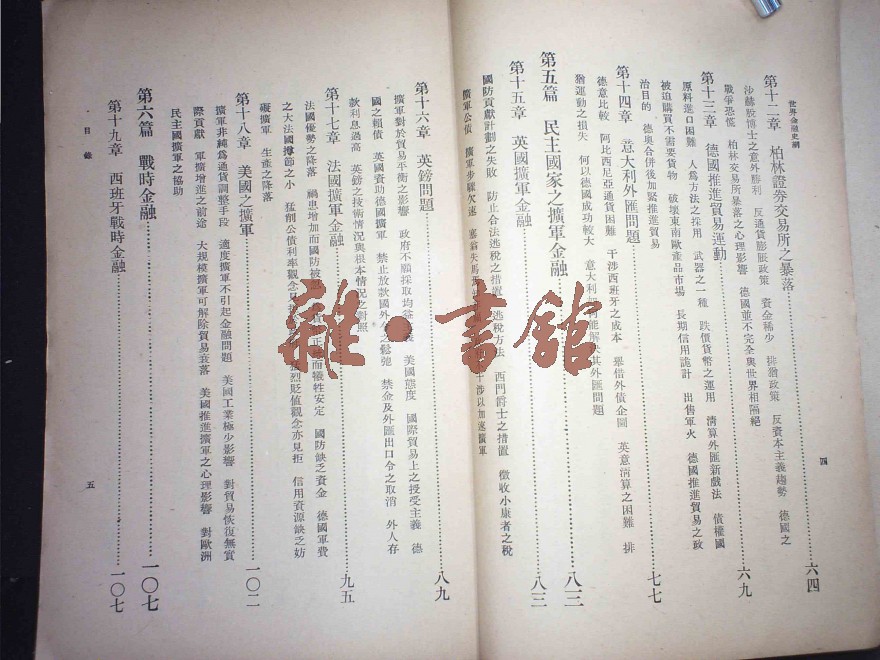 世界金融史綱
第十二章 柏林證券交易所之暴落 六四
涉赫脫博士之意外勝利 反通貨膨脹政策 資金稀少 排猶政策 反資本主義趨勢 德國之
戰爭恐慌 柏林交易所暴落之心理影響 德國並不完全與世界相隔絕
第十三章 德國推進貿易運動 六九
原料進口困難 人為方法之採用 武器之一種 跌價貨幣之運用 清算外匯新戲法 債權國
被迫購買不需要貨物 破壞東南歐產品市場 長期信用詭計 出售軍火 德國推進貿易之政
治目的 德奧合併後加緊推進貿易
第十四章 意大利外匯問題 七七
德意比較 阿比西尼亞通貨困難 干涉西班牙之成本 舉借外債企圖 英意清算之困難 排
猶運動之損失 何以德國成功較大 意大利
解
其外匯問題
第五篇 民主國家之擴軍金融 八三
第十五章 英國擴軍金融 八三
國防貢獻計劃之失敗 防止合法逃稅之措置 逃稅方法 西門爵士之措置 徵收小康者之稅
擴軍公債 擴軍步驟欠速 塞翁失馬
干涉以加速擴軍
四
第十六章 英鎊問題 八九
擴軍對於貿易平衡之影響 政府不願採取均
美國態度 國際貿易上之授受主義 德
國之賴債 英國資助德國擴軍 禁止放款國外
之鬆弛 禁金及外匯出口令之取消 外人存
款利息過高 英鎊之技術情況與根本情況之對照
第十七章 法國擴軍金融 九五
法國優勢之降落 禍患增加而國防被
正
而犧牲安定 國防缺乏資金 德國軍費
之大法國撙節之小 猛削公債利率觀念
猛烈貶值觀念亦見拒 信用資源缺乏妨
礙擴軍 生產之降落
第十八章 美國之擴軍 一〇二
擴軍非純為通貨調整手段 適度擴軍不引起金融問題 美國工業極少影響 對貿易恢復無實
際貢獻 軍擴增進之前途 大規模擴軍可解除貿易衰落 美國推進擴軍之心理影響 對歐洲
民主國擴軍之協助
第六篇 戰時金融 一〇七
第十九章 西班牙戰時金融 一〇七
目錄
五
雜·書館